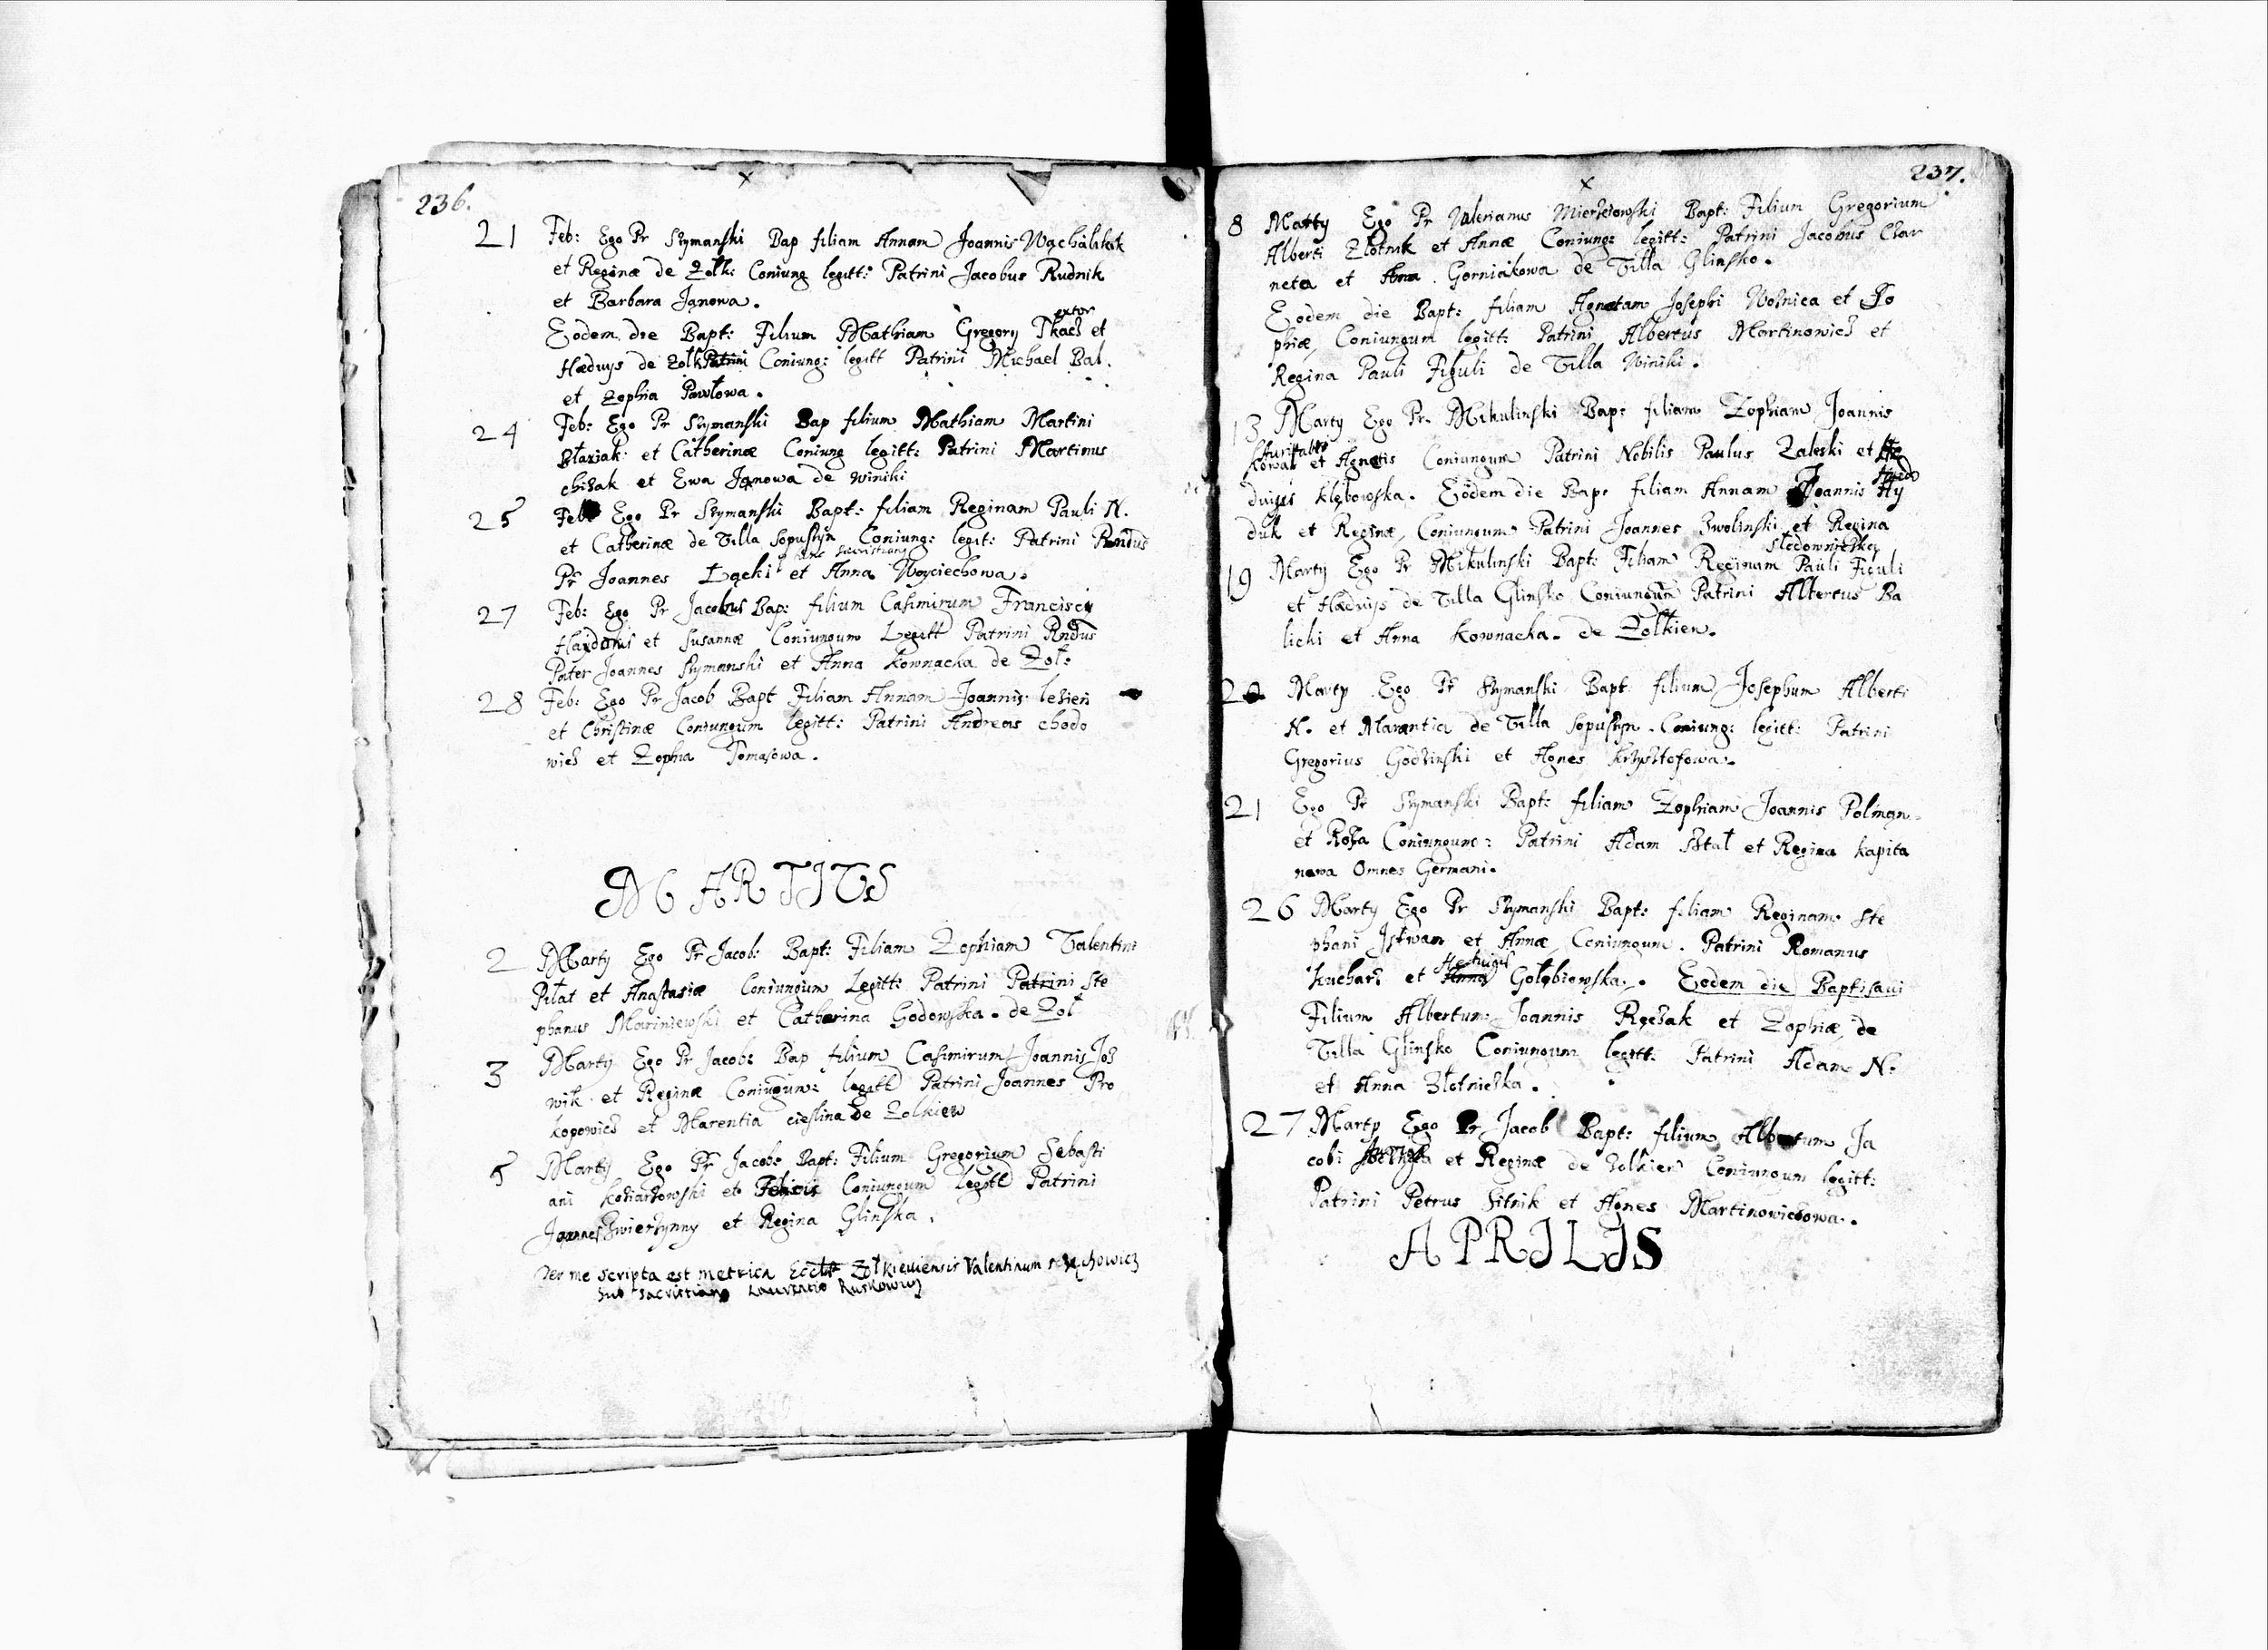 236.
21 Feb: Ego Pr Szymanski Bap filiam Annam Joannis
et Reginæ de Zolk: Coniung legitt: Patrini Jacobus Rudnik
et Barbara Janowa.
Eodem die Bapt: Filium Mathiam Gregory Tkacz et
Hædvijs de Zolk Patrini Coniung: legitt Patrini Michael Bal.
et Zophia Pawłowa.
24 Feb: Ego Pr Szymanski Bap filium Mathiam Martini
Błaziak et Catherinæ Coniung legitt: Patrini Martinus
chizak et Ewa Janowa de Winiki
25 Feb Ego Pr Szymanski Bapt: filiam Reginam Pauli N.
et Catherinæ de Villa Sopuszyn Coniung: legit: Patrini Rndus
Pr Joannes Łącki et Anna Woyciechowa.
27 Feb: Ego Pr Jacobus Bap: filium Casimirum Francisci
et Susannæ Coniungum Legitt Patrini Rndus
Pater Joannes Szymanski et Anna Kownacka de Zoł:
28 Feb: Ego Pr Jacob Bapt Filiam Annam Joannis lezien
et Christinæ Coniungum legitt: Patrini Andreas chodo
wicz et Zophia Tomasowa.
MARTIVS
2 Marty Ego Pr Jacob: Bapt: Filiam Zophiam Valentini
Piłat et Anastasiæ Coniungum Legitt: Patrini Patrini Ste
phanus Mariniewski et Catharina Godowska. de Zoł
3 Marty Ego Pr Jacob: Bap filium Casimirum Joannis Joz
wik et Reginæ Coniugum: legitt Patrini Joannes Pro
kopowicz et Marentia cieslina de Zolkiew
5 Marty Ego Pr Jacob: Bapt: Filium Gregorium Sebasti
ani et Coniungum legitt Patrini
Joannes Zwierzynny et Regina Glinska.
Per me scripta est metrica Zołkieuiensis Valentinum
sub sacristiano Laurentio Ruskowicz
237.
8 Marty Ego Pr Valerianus Bapt: Filium Gregorium
Alberti Złotnik et Annæ Coniung: legitt: Patrini Jacobus Clar
neta et Anna Gorniakowa de Villa Glinsko.
Eodem die Bapt: filiam Agnetam Josephi Wolnica et Zo
phiæ Coniungum legitt: Patrini Albertus Martinowicz et
Regina Pauli Figuli de Villa Winiki.
13 Marty Ego Pr. Mikulinski Bap: filiam Zophiam Joannis
Kowal et Agnetis Coniungum Patrini Nobilis Paulus Zaleski et He
dvigis Klębowska. Eodem die Bap: filiam Annam Joannis Hy
duk et Reginæ Coniungum Patrini Joannes Zwolinski et Regina
Sledowniczka
19 Marty Ego Pr Mikulinski Bapt: Filiam Reginam Pauli Figuli
et Hædvijs de Villa Glinsko Coniungum Patrini Albertus Ba
licki et Anna Kownacka. de Zolkiew.
20 Marty Ego Pr Szymanski Bapt: filium Josephum Alberti
N. et Marantia de Villa Sopuszyn. Coniung: legitt: Patrini
Gregorius Godzinski et Agnes Krzysztofowa.
21 Ego Pr Szymanski Bapt: filiam Zophiam Joannis Polman
et Roza Coniungum: Patrini Adam Sztal et Regina Kapita
nowa Omnes Germani.
26 Marty Ego Pr Szymanski Bapt: filiam Reginam Ste
phani Istwan et Annæ Coniungum. Patrini Romanus
Kucharz et Hedwigis Gołębiowska. Eodem die Baptisaui
Filium Albertum Joannis Ręczak et Zophiæ de
Villa Glinsko Coniungum legitt: Patrini Adam N.
et Anna Złotniczka.
27 Marty Ego Pr Jacob Bapt: filium Albertum Ja
cobi et Reginæ de Zolkiew Coniungum legitt:
Patrini Petrus Sitnik et Agnes Martinowiczowa.
APRILIS